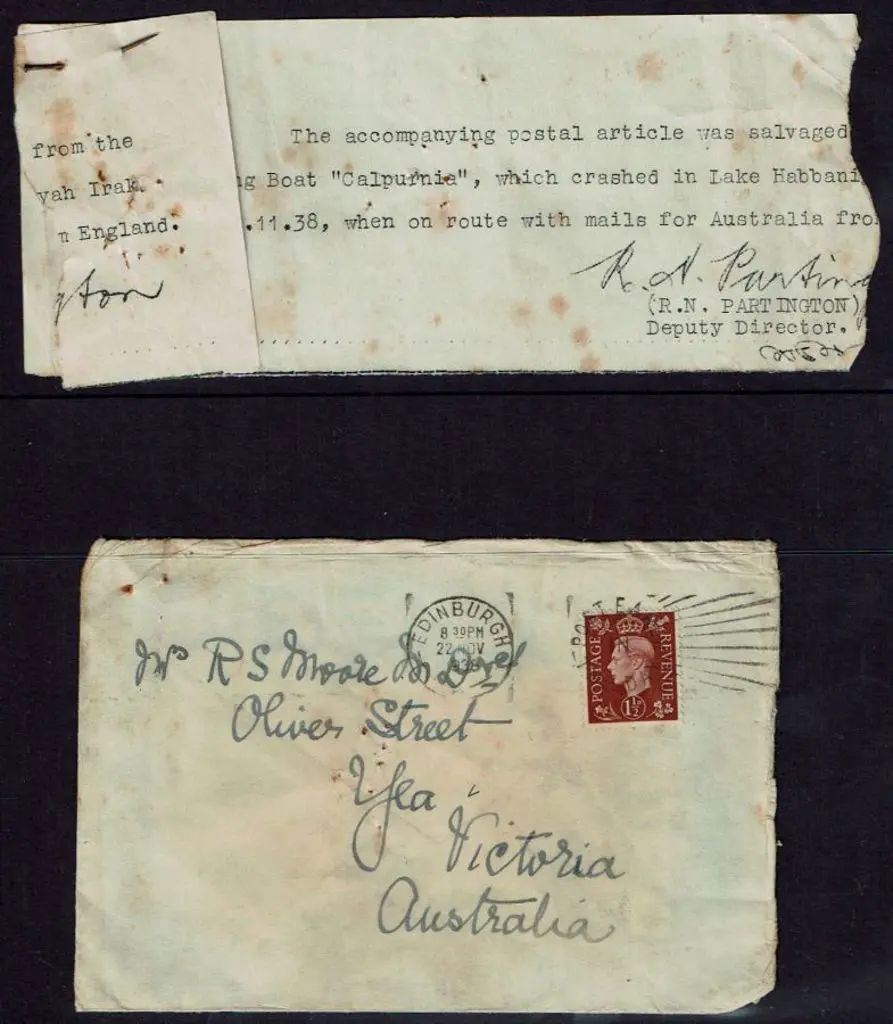 from the
yah Irak.
n England.
gton
The accompanying postal article was salvaged
ng Boat "Calpurnia", which crashed in Lake Habbani
.11.38, when on route with mails for Australia fro
R. N. Parting
(R.N. PARTINGTON)
Deputy Director.
EDINBURGH
8 30PM
22 NOV
1938
POST EA
POSTAGE
REVENUE
1½D
Mrs R S Moore
Oliver Street
Yea
Victoria
Australia